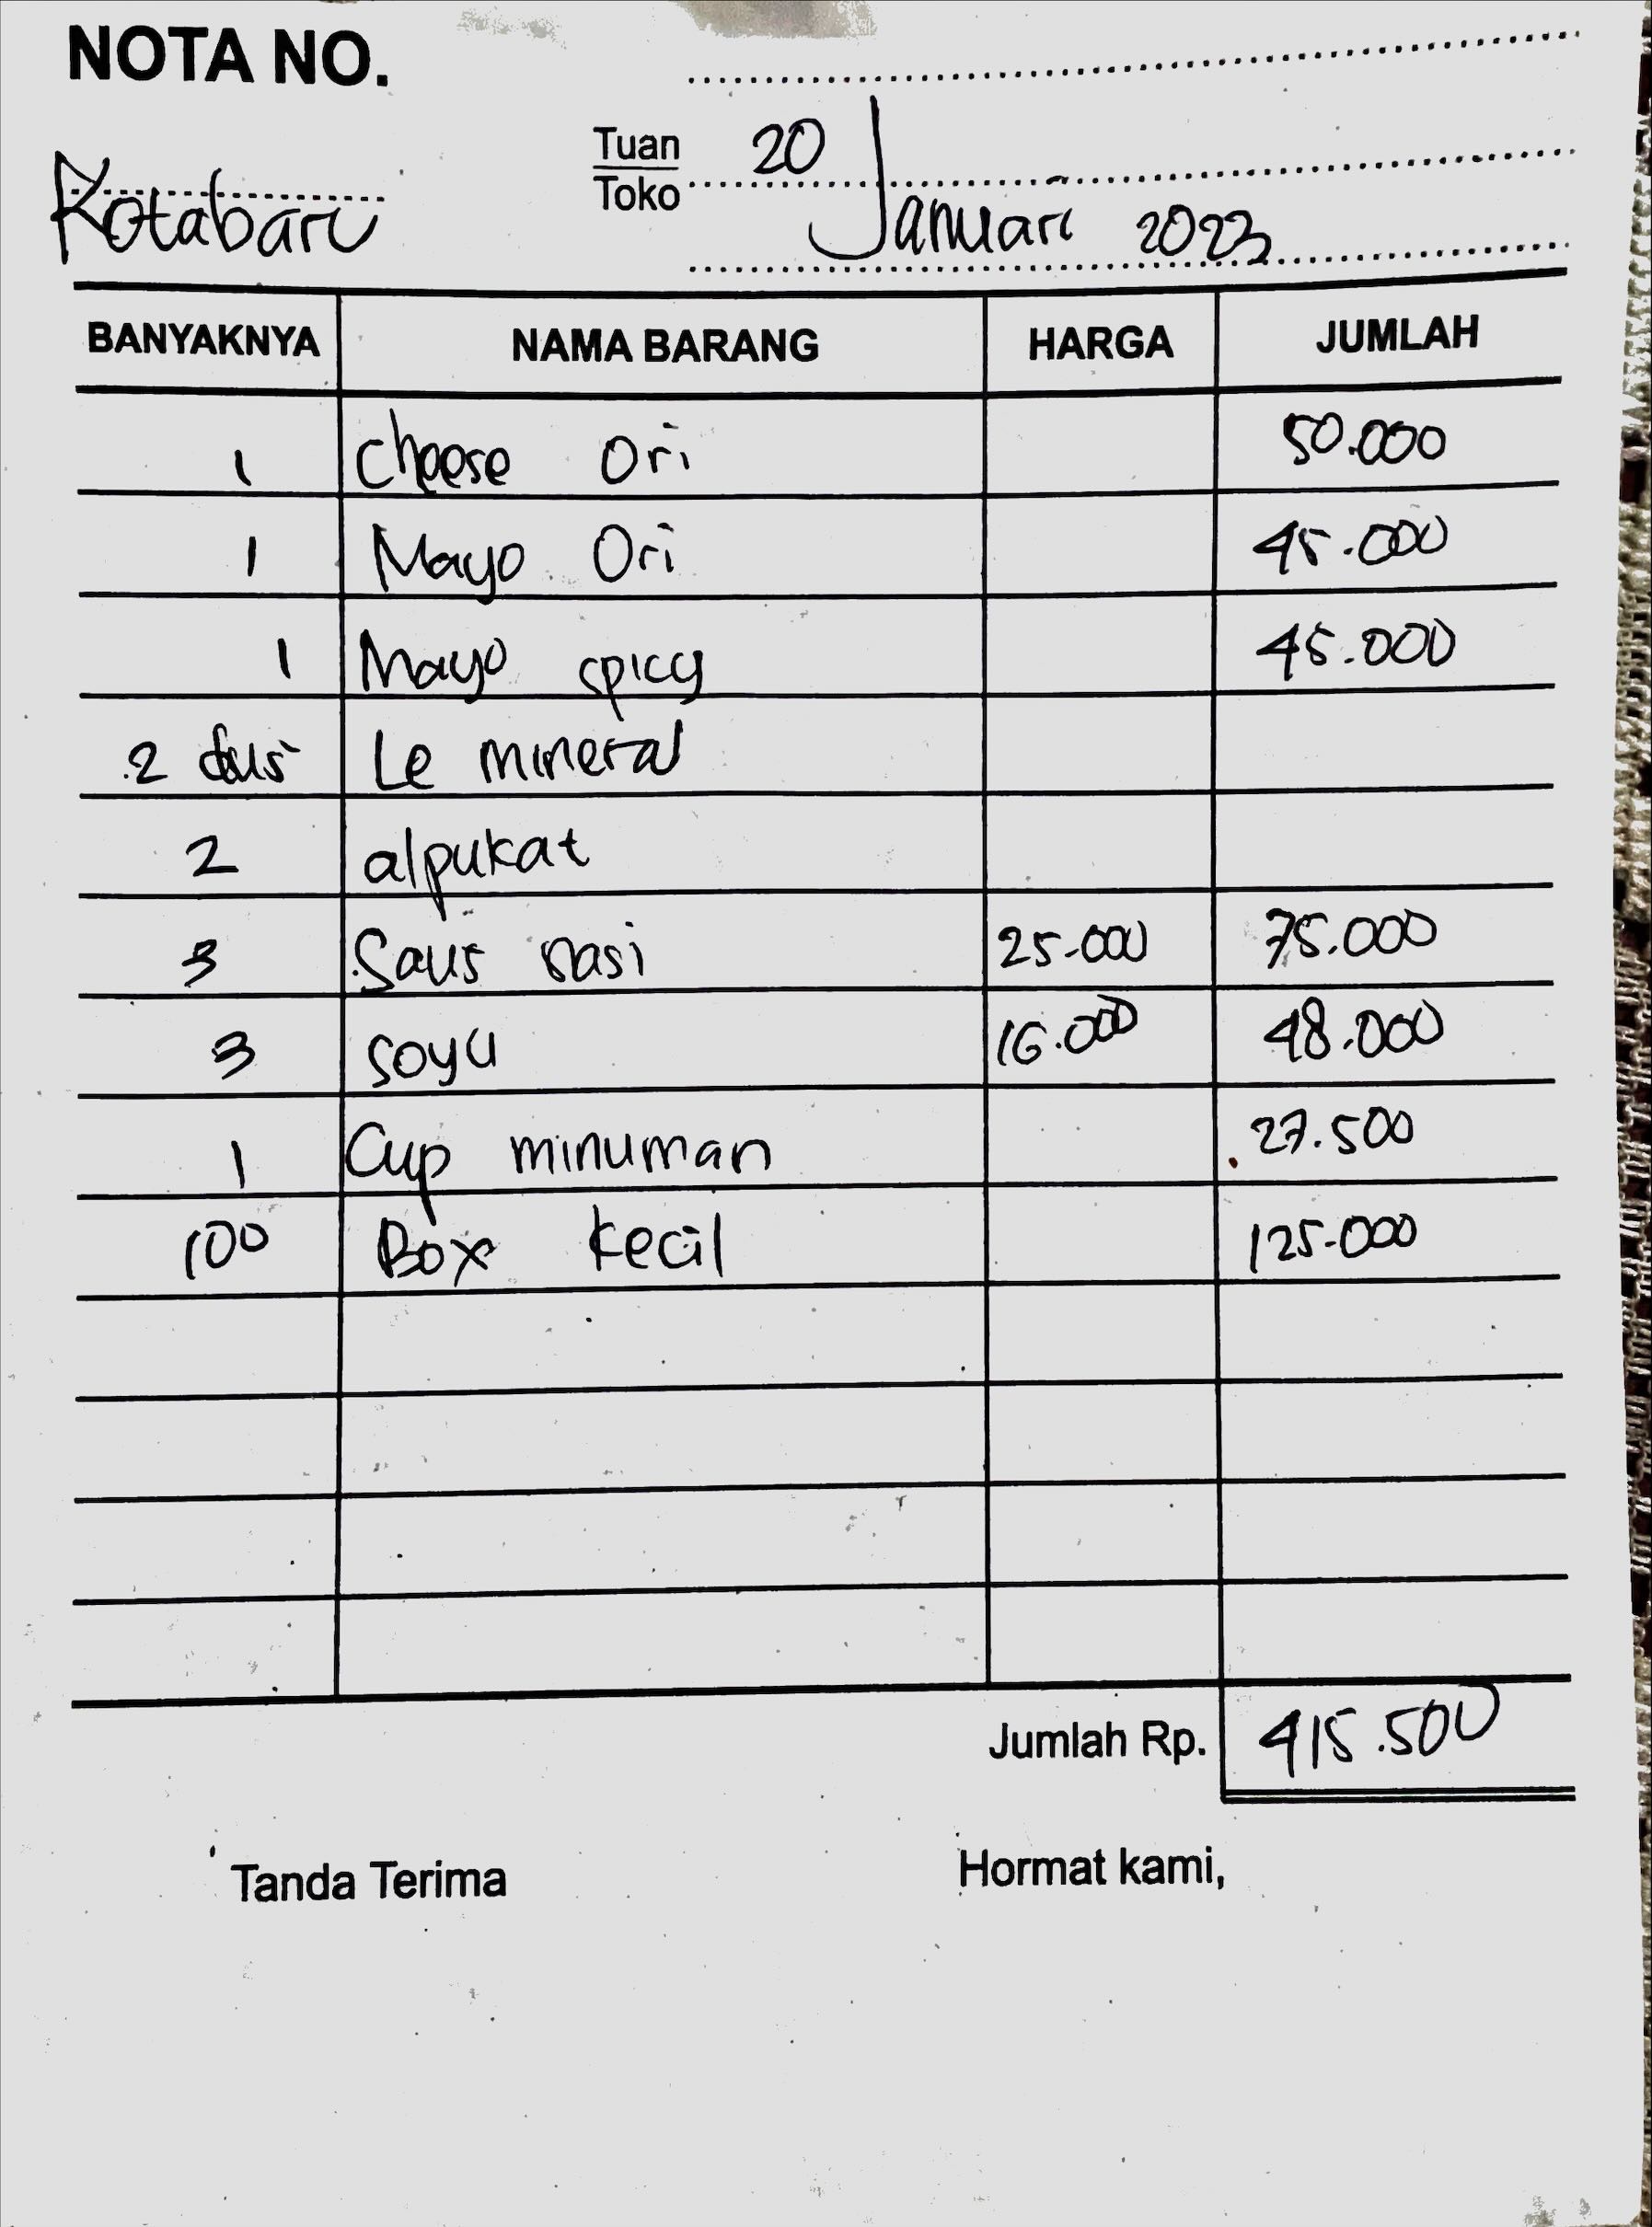 NOTA NO.
Tuan
Toko
20 Januari 2023
Kotabaru
BANYAKNYA NAMA BARANG HARGA JUMLAH
1 Cheese Ori 50.000
1 Mayo Ori 45.000
1 Mayo spicy 45.000
2 dus Le mineral
2 alpukat
3 Saus nasi 25.000 75.000
3 soyu 16.000 48.000
1 Cup minuman 27.500
100 Box kecil 125.000
Jumlah Rp. 415.500
Tanda Terima Hormat kami,